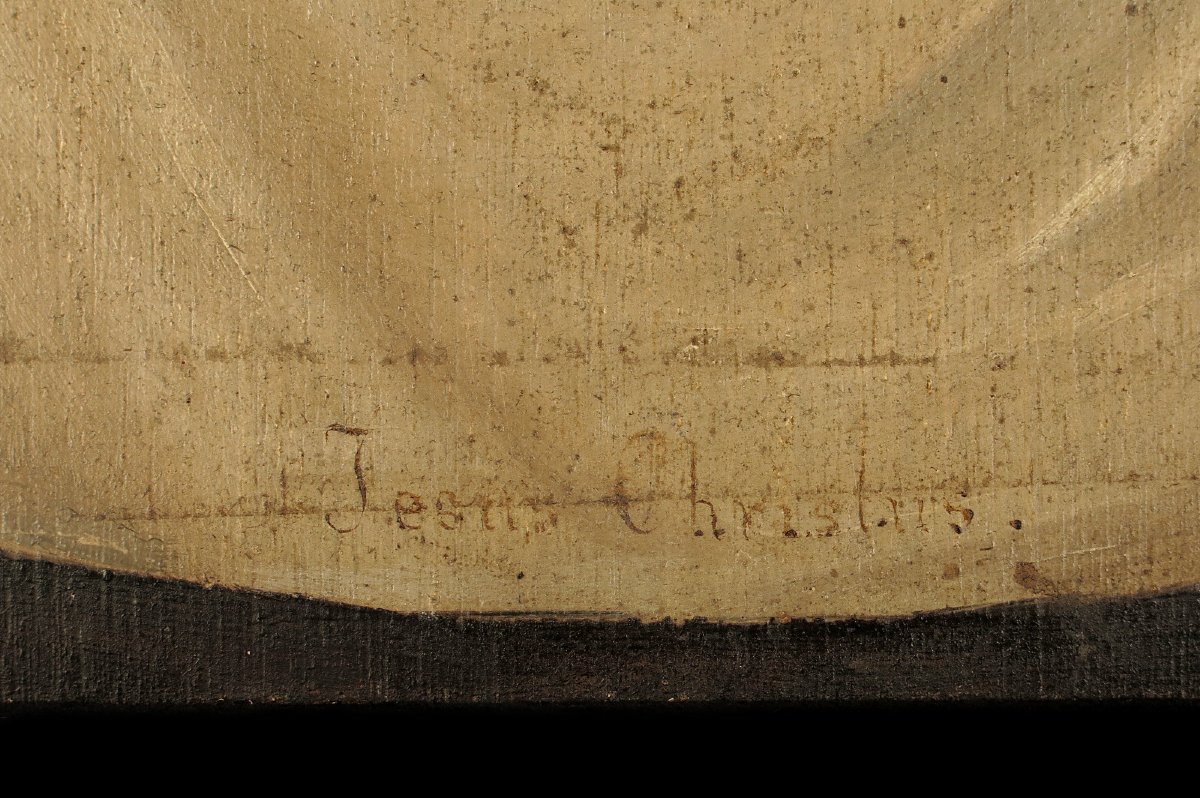 Jesus Christus.